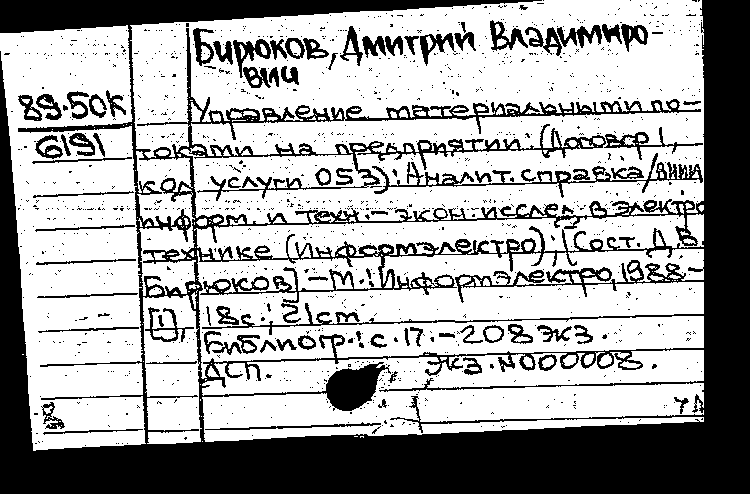 Бирюков, Дмитрий Владимиро-
вич
89-50К
6191
Управление материальными по-
токами на предприятии: (Договор 1,
код услуги 053): Аналит. справка/ВНИИ
информ. и техн.-экон. исслед. в электро
технике (Информэлектро); [Сост. Д.В.
Бирюков]. - М.: Информэлектро, 1988.-
[1], 18с.; 21cm.
Библиогр.: с.17. - 208 экз.
ДСП. Экз. N000008.